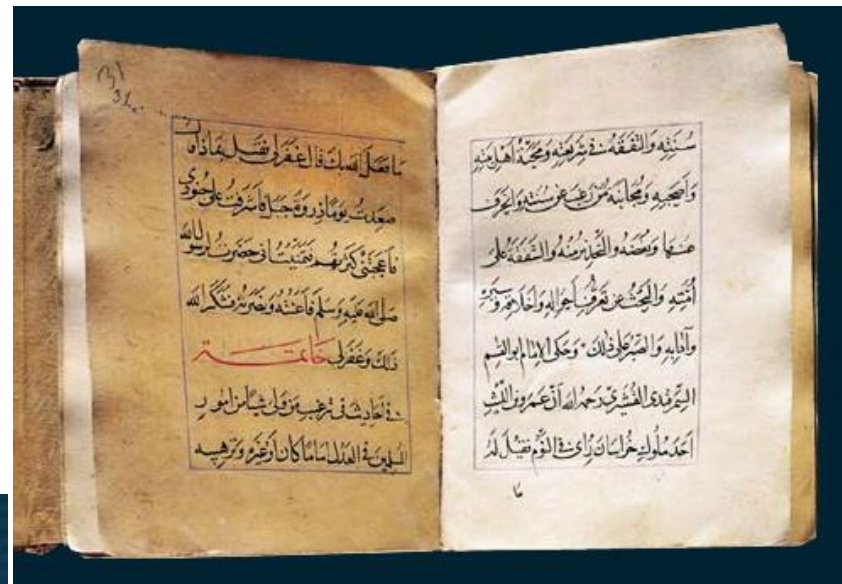 سنته والتفقه في شريعته ومحبة اهل منه
واصحبه ومجانبة من رغب عن سنته وانحرف
عنها وبغضه والتحذير منه والشفقة على
أمته والبحث عن تعرف احواله واخلاقه وسيره
وآدابه والصبر على ذلك وحكى الامام ابو القسم
القشيري رحمه الله ان عمرو بن الليث
احد ملوك خراسان رأى في النوم فقيل له
ما فعل الله بك قال غفر لي فقيل بماذا
صعدت يوما ذروة جبل فاشرفت على جنودي
فاعجبتني كثرتهم فتمنيت اني حضرت لرسول الله
صلى الله عليه وسلم فاعنته ونصرته فشكر الله
ذلك وغفر لي خاتمة
في احاديث في ترغيب من ولي شيا من امور
المسلمين في العدل اماما كان او غيره وترهيبه